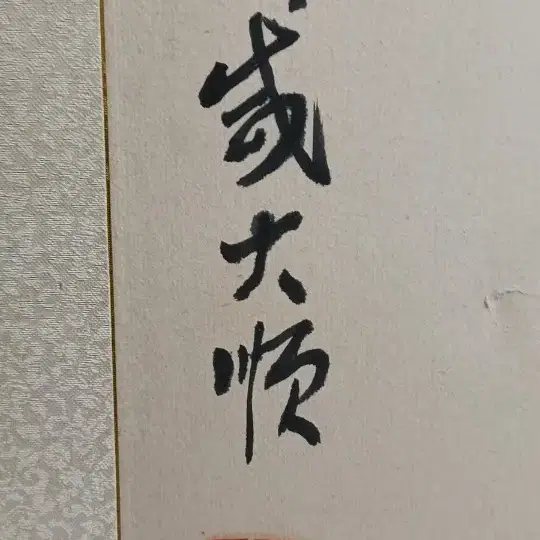 歲大順